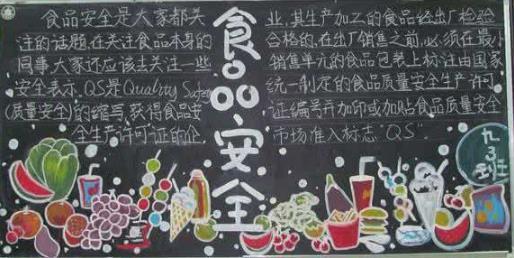 食品安全是大家都关
注的话题,在关注食品本身的
同事,大家还应该去关注一些
安全表示,QS是Quality Safety
(质量安全)的缩写,获得食品安
全生产许可证的企
食品安全
业,其生产加工的食品经出厂检验
合格的,在出厂销售之前,必须在最小
销售单元的食品包装上标注由国家
统一制定的食品质量安全生产许可
证编号并加印或加贴食品质量安全
市场准入标志"QS"
九3班